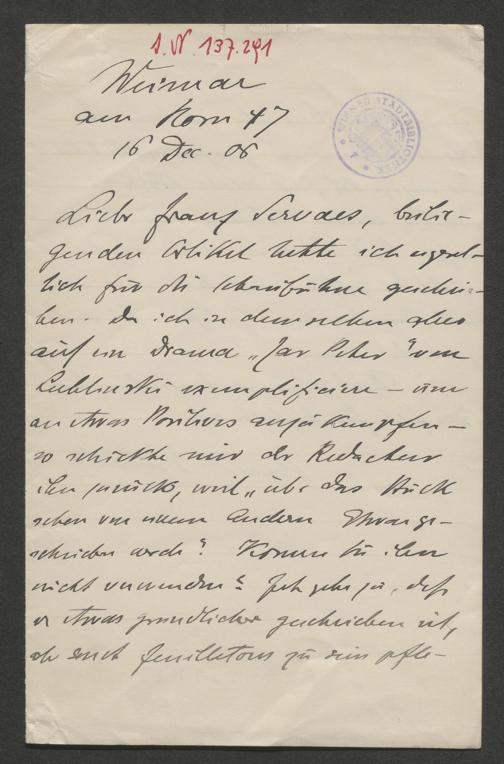 I. N. 137.291
WIENER STADTBIBLIOTHEK
Weimar
am Horn 47
16 Dec. 06
Lieber Franz Servaes, beilie-
genden Artikel hatte ich eigent-
lich für die Schaubühne geschrie-
ben. Da ich in demselben aber
auf ein Drama „Zar Peter" von
Lublinski exemplificiere – um
an etwas Positives anzuknüpfen –
so schickte mir der Redacteur
ihn zurück, weil „über das Stück
schon von einem Andern Etwas ge-
schrieben werde". Können Sie ihn
nicht verwenden? Ich gebe zu, daß
er etwas gründlicher geschrieben ist,
als sonst Feuilletons zu sein pfle-